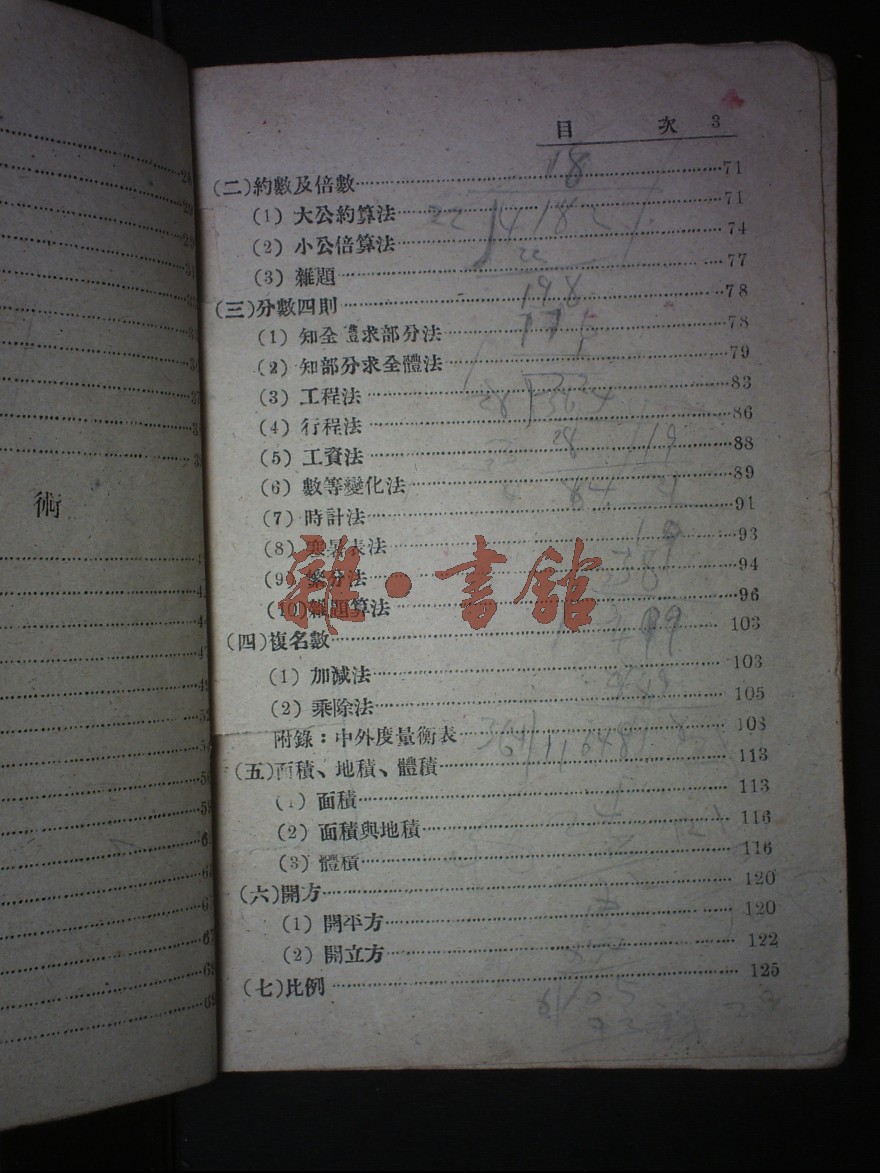 目 次 3
(二)約數及倍數……71
(1) 大公約算法……71
(2) 小公倍算法……74
(3) 雜題……77
(三)分數四則……78
(1) 知全體求部分法……78
(2) 知部分求全體法……79
(3) 工程法……83
(4) 行程法……86
(5) 工資法……88
(6) 數等變化法……89
(7) 時計法……91
(8) 寒暑表法……93
(9) 繁分法……94
(10)雜題算法……96
(四)複名數……103
(1) 加減法……103
(2) 乘除法……105
附錄：中外度量衡表……108
(五)面積、地積、體積……113
(1) 面積……113
(2) 面積與地積……116
(3) 體積……116
(六)開方……120
(1) 開平方……120
(2) 開立方……122
(七)比例……125
術
雜·書館